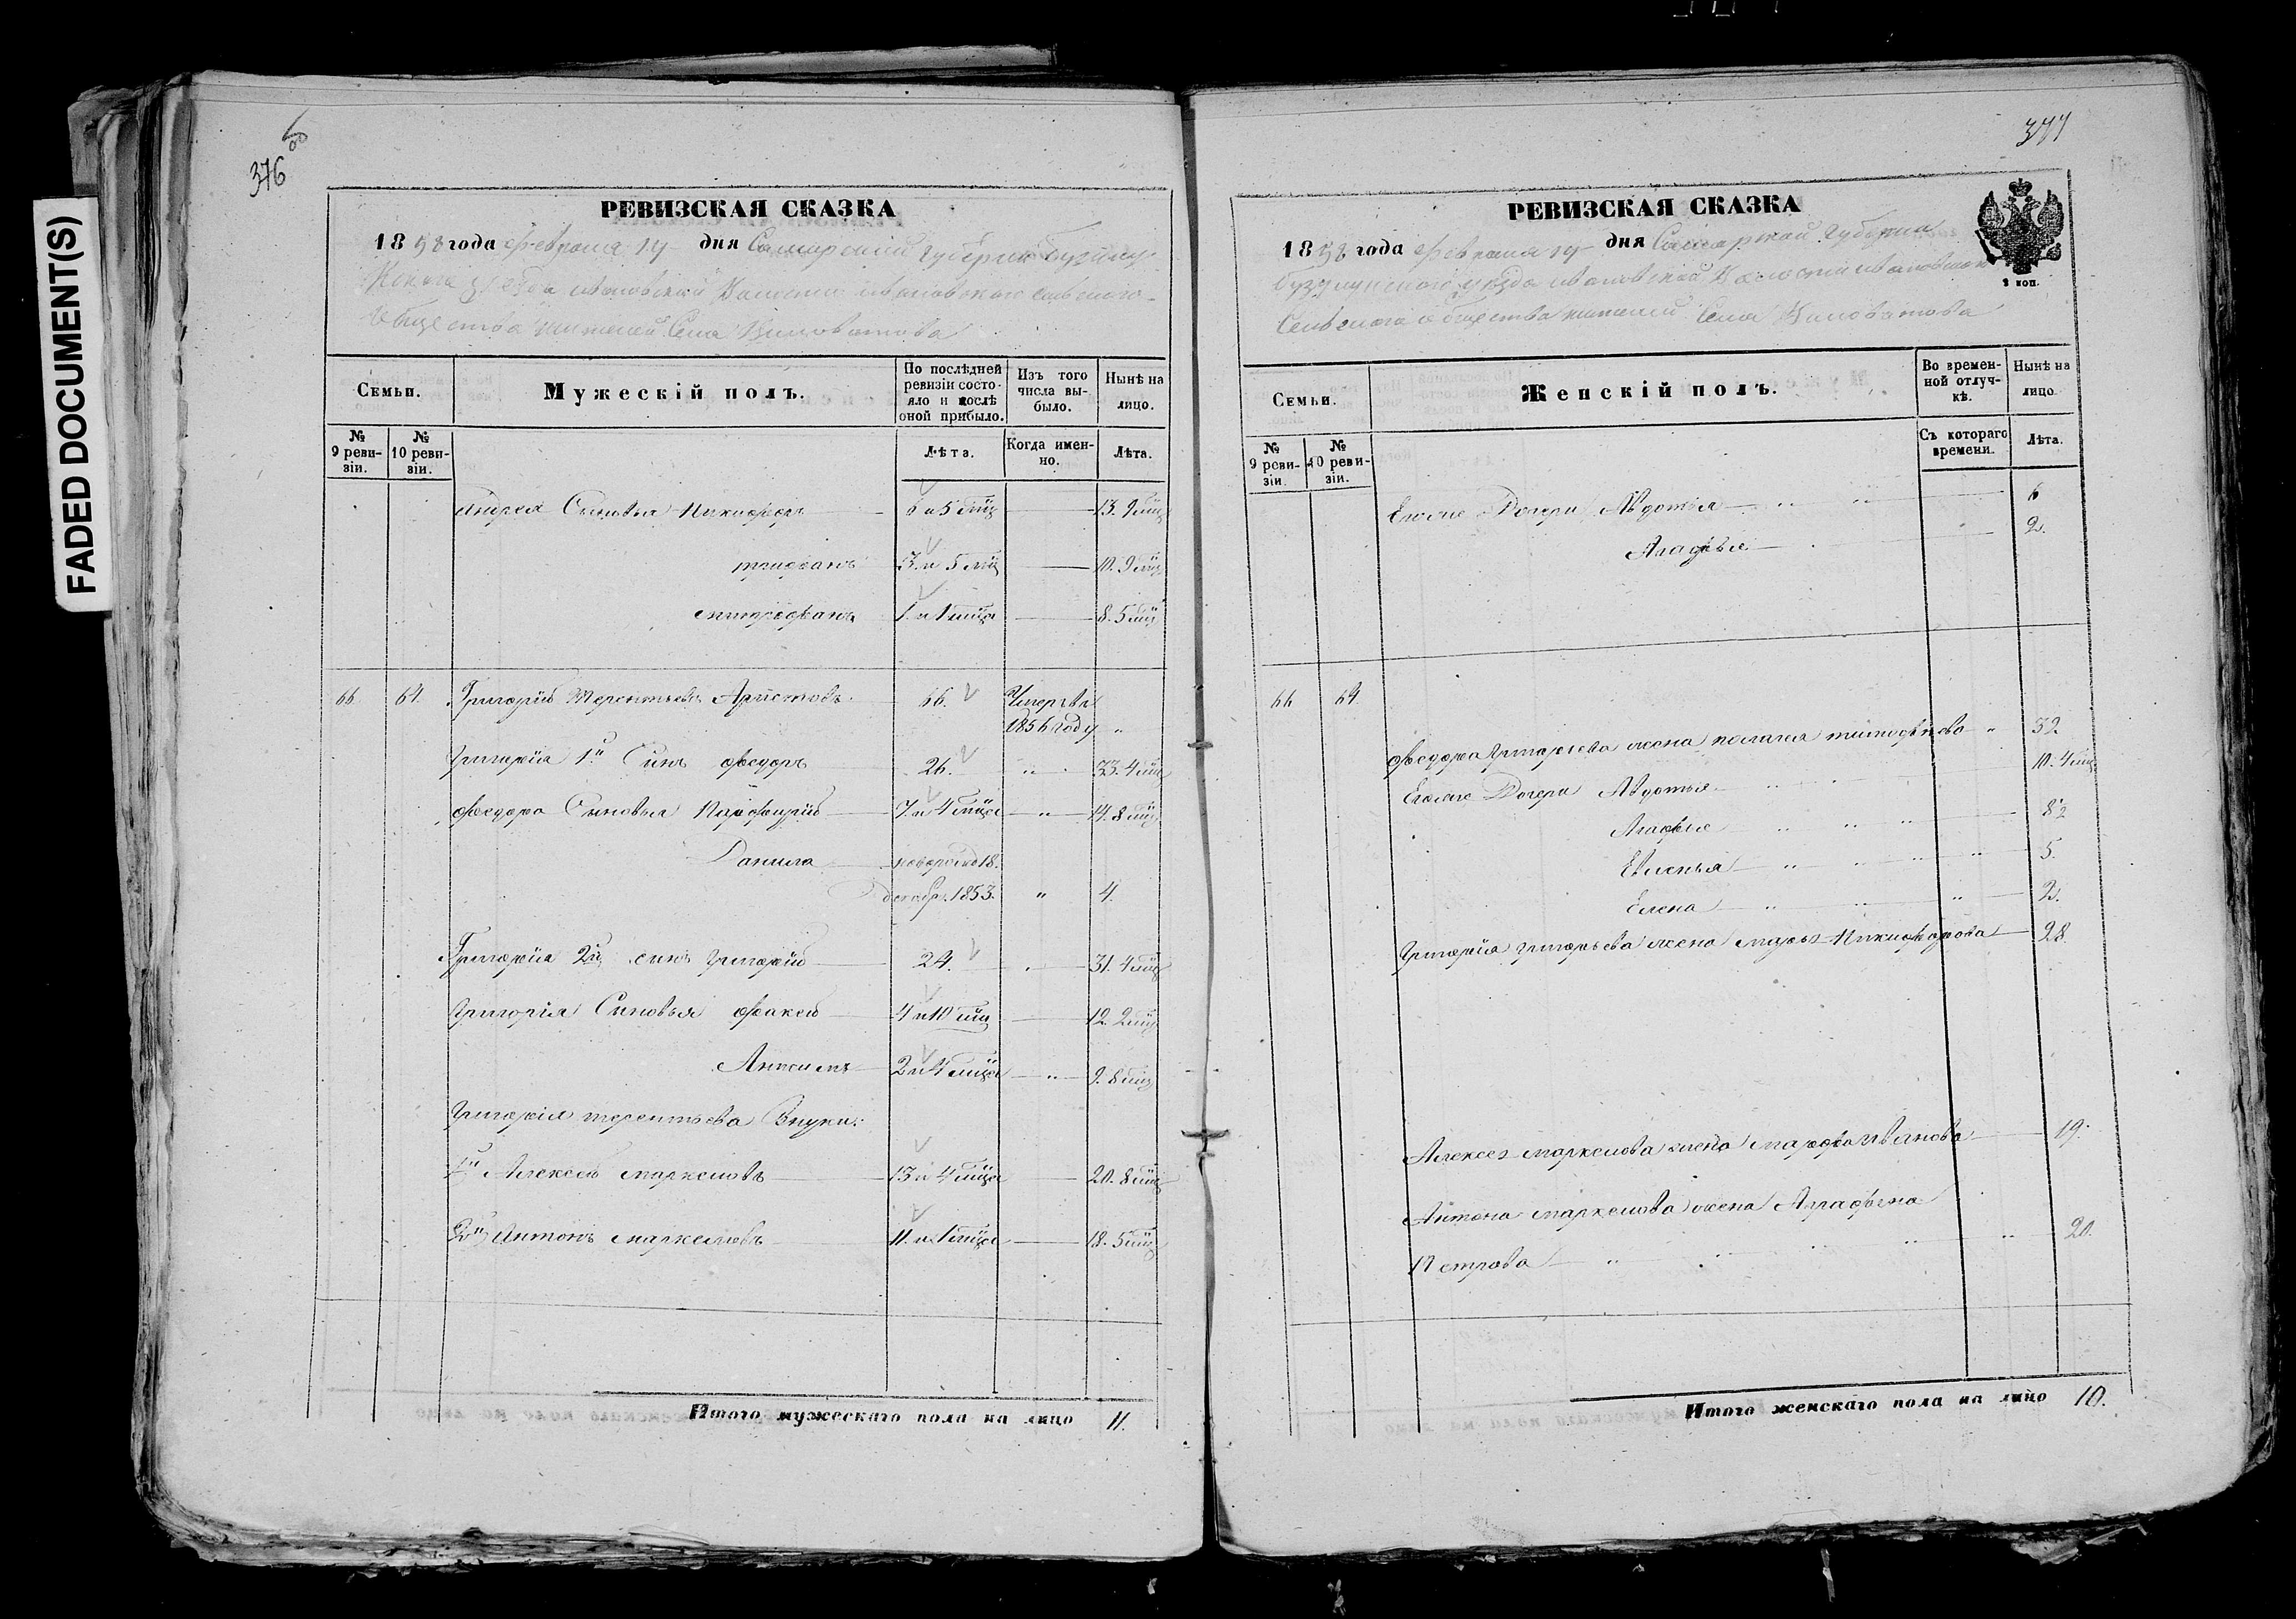 FADED DOCUMENT(S)
376 об
РЕВИЗСКАЯ СКАЗКА
1858 года февраля 14 дня Самарской Губернии Бузулу-
Кскаго уѣзда ивановской Волости ивановскаго сельскаго
Общества жителей Села Виловатова
Семьи.
Мужескій полъ.
По послѣдней ревизіи состо-яло и послѣ оной прибыло.
Изъ того числа вы-было.
Нынѣ на лицо.
№ 9 реви-зіи.
№ 10 реви-зіи.
Лѣта.
Когда имен-но.
Лѣта.
Андрея Сыновья Никифоръ 6 и 5 мцъ 13. 9 мцъ
трифанъ 3. и 5 мцъ 10. 9 мцъ
митрофанъ 1. и 1 мица 8. 5 мцъ
66. 64. Григорій Терентьевъ Аристовъ 66. Умеръ въ
1856 году "
Григорія 1й Сынъ федоръ 26. " 33. 4 мцъ
федора Сыновья Парфирій 7. и 4 мица " 14. 8 мцъ
Данила новорожд 18.
декабр. 1853. " 4.
Григорія 2й сынъ Григорій 24. 31. 4 мцъ
Григорія Сыновья фокей 4 и 10 мцъ 12. 2 мцъ
Анисимъ 2 и 4 мица " 9. 8 мцъ
Григорія терентьева Внуки:
1й Алексей маркеловъ 13 и 4 мица 20. 8 мцъ
2й Антонъ маркеловъ 11. и 1 мица 18. 5 мцъ
Итого мужескаго пола на лицо 11.
377
РЕВИЗСКАЯ СКАЗКА
1858 года февраля 14 дня Самарской Губернии
бузулукскаго уезда ивановской Волости ивановскаго
Сельскаго общества жителей Села Виловатова
2 коп.
Семьи.
Женскій полъ.
Во времен-ной отлуч-кѣ.
Нынѣ на лицо
№ 9 реви-зіи.
№ 10 реви-зіи.
Съ котораго времени.
Лѣта.
Еголые Дочери Авдотья " " 6
Агафья 2.
66 64
федора Григорьева жена пелагея тимофѣева " 32
Еголые Дочери Авдотья " 10. 4 мцъ
Агафья " " " 8 1/2
Евленья " " " " 5.
Елена " " " 2.
Григорія григорьева жена марья Никифорова 28.
Алексея маркелова жена марфа Иванова 19.
Антона маркелова жена Аграфена
Петрова " " " " " 20.
Итого женскаго пола на лицо 10.